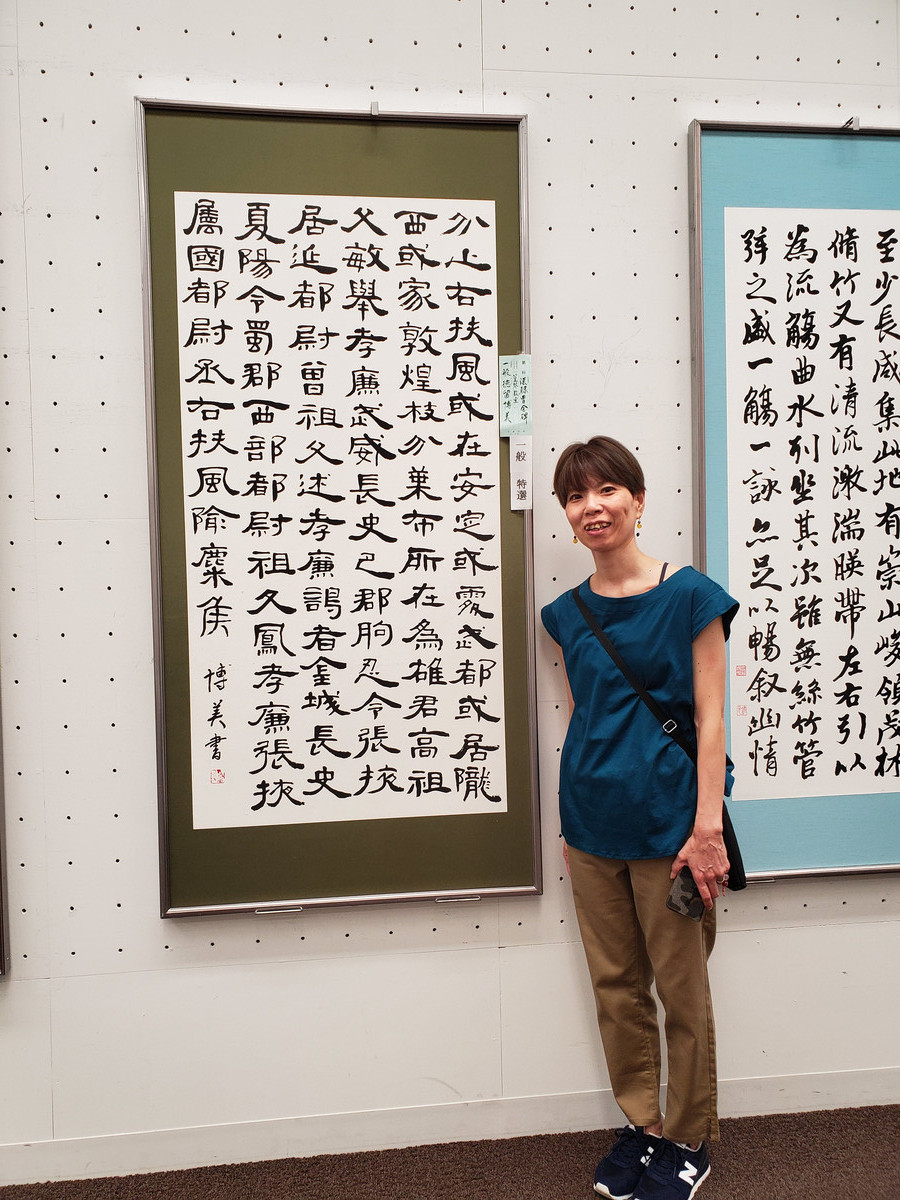 分止右扶風或在安定或處武都或居隴
西或家敦煌枝分葉布所在為雄君高祖
父敏舉孝廉武威長史巴郡朐忍令張掖
居延都尉曾祖父述孝廉謁者金城長史
夏陽令蜀郡西部都尉祖父鳳孝廉張掖
屬國都尉丞右扶風隃麋侯
博美書
曹全碑
一般
博美
一般 特選
至少長咸集此地有崇山峻領茂林
脩竹又有清流激湍暎帶左右引以
為流觴曲水列坐其次雖無絲竹管
弦之盛一觴一詠亦足以暢叙幽情
N